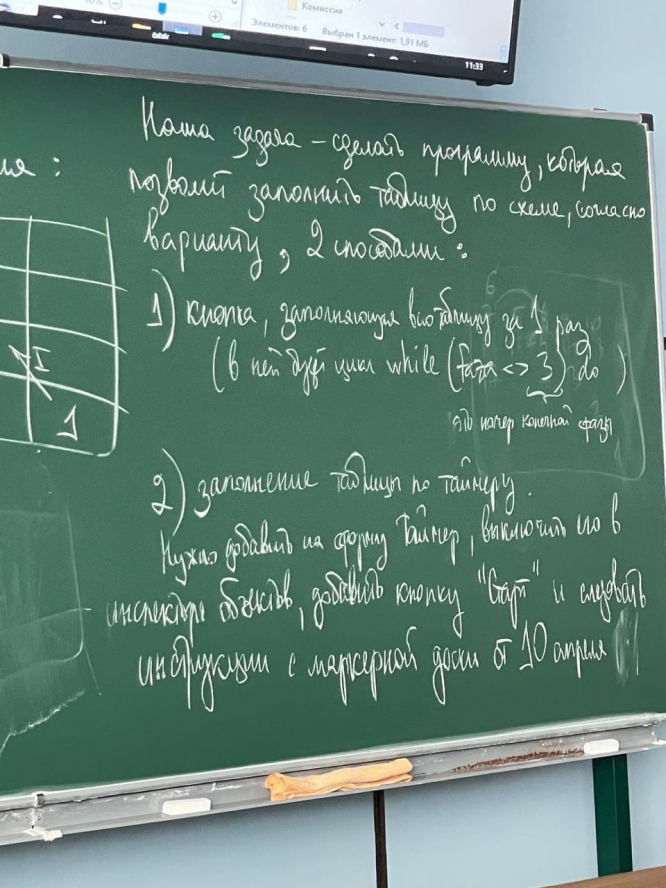 Комиссия
Элементов: 6 Выбран 1 элемент: 1,91 МБ
11:33
Наша задача – сделать программу, которая
позволит заполнить таблицу по схеме, согласно
варианту, 2 способами:
1) кнопка, заполняющая всю таблицу за 1 раз
(в ней будет цикл while (faza <> 3) do)
это номер конечной фазы
2) заполнение таблицы по таймеру.
Нужно добавить на форму Таймер, выключить его в
инспекторе объектов, добавить кнопку "Старт" и следовать
инструкции с маркерной доски от 10 апреля
I
1